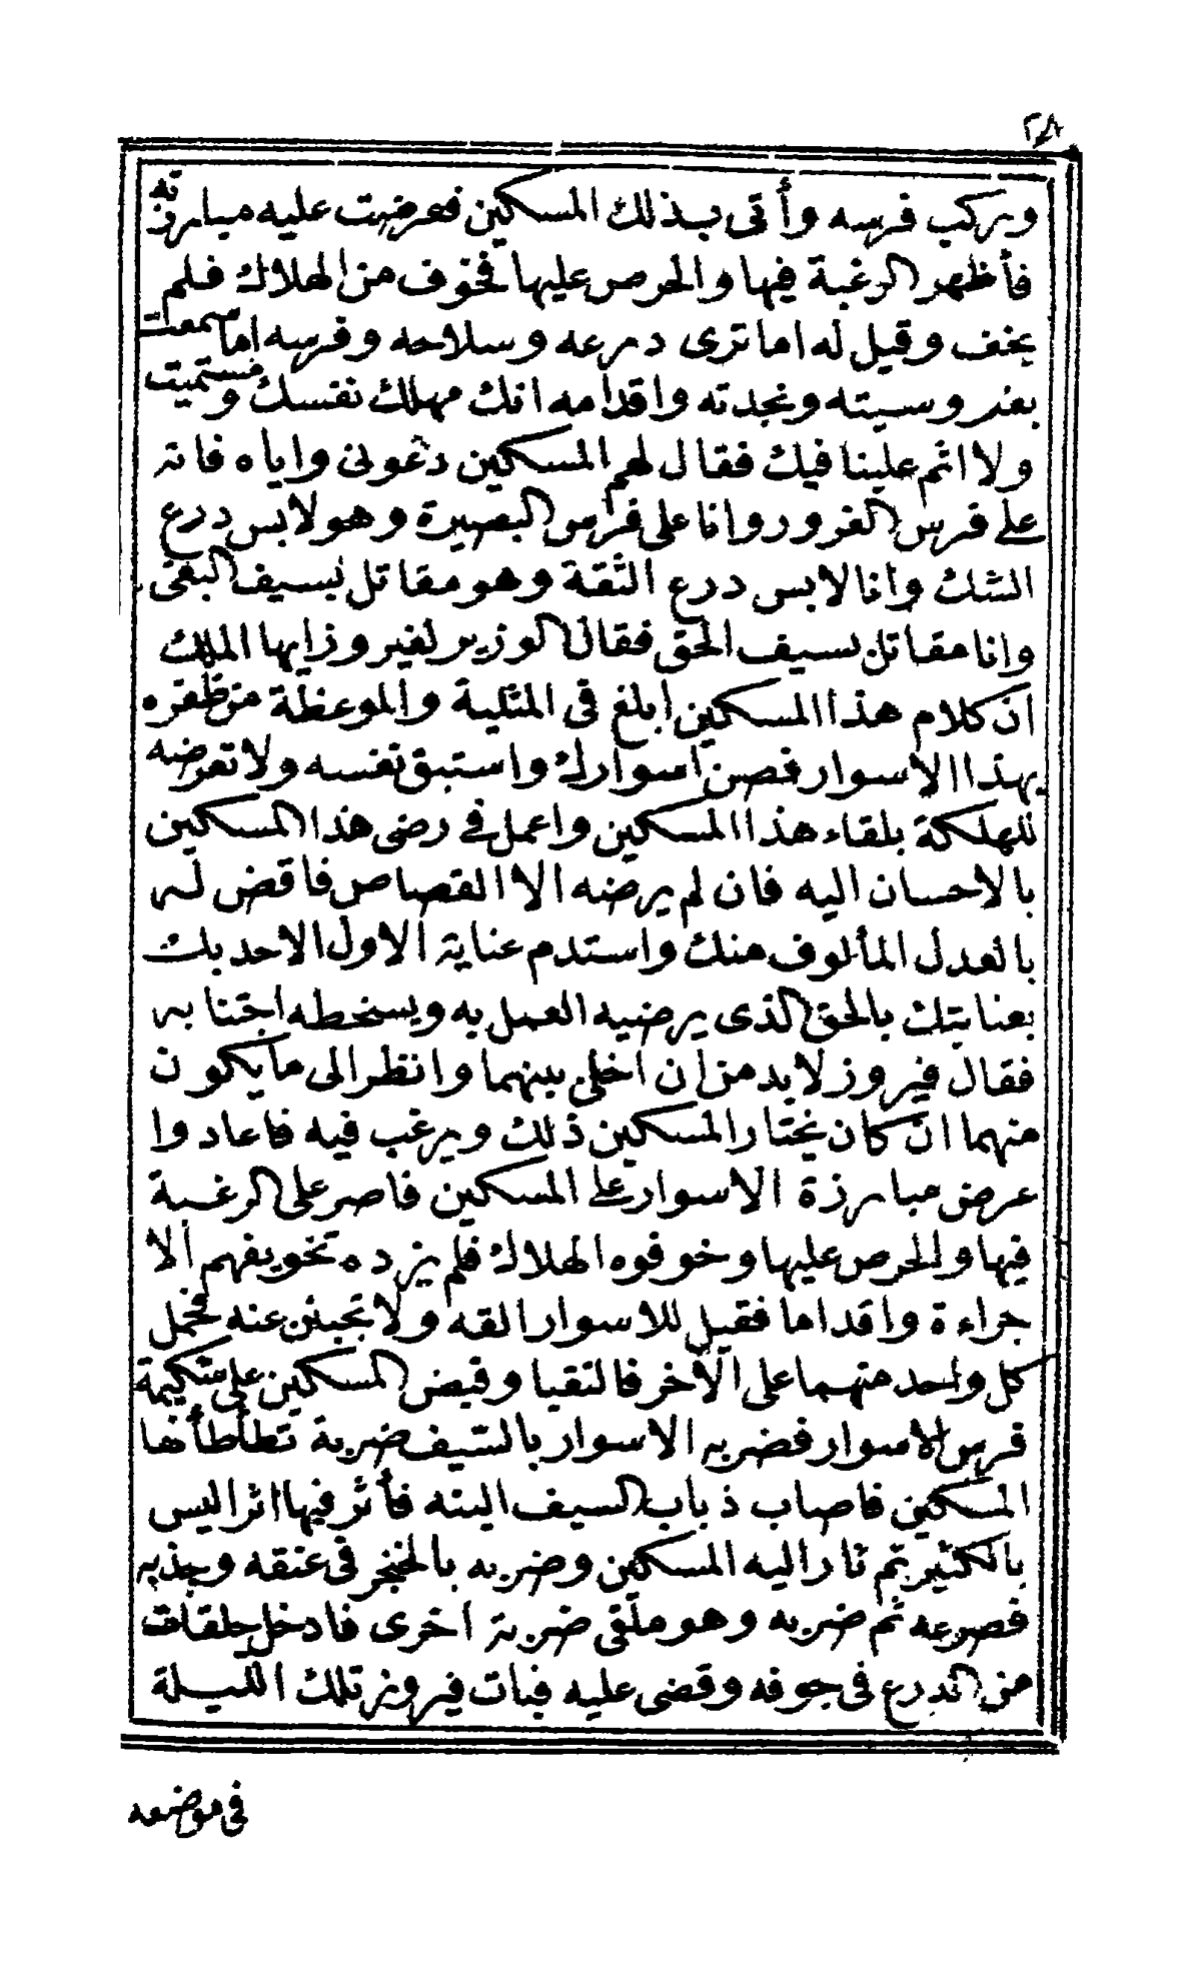 ٢٨
ويركب فرسه وأتى بذلك المسكين فعرضت عليه مبارزته
فأظهر الرغبة فيها والحرص عليها فخوف من الهلاك فلم
يخف وقيل له اما ترى درعه وسلاحه وفرسه اما سمعت
بفروسيته ونجدته واقدامه انك مهلك نفسك ومستميت
ولا اثم علينا فيك فقال لهم المسكين دعونى واياه فانه
على فرس الغرور وانا على فرس البصيرة وهو لابس درع
الشك وانا لابس درع الثقة وهو مقاتل بسيف البغى
وانا مقاتل بسيف الحق فقال الوزير لفيروز ايها الملك
ان كلام هذا المسكين ابلغ فى المثلية والموعظة من ظفره
بهذا الاسوار فصن اسوارك واستبق نفسه ولا تعرضه
للهلكة بلقاء هذا المسكين واعمل فى رضى هذا المسكين
بالاحسان اليه فان لم يرضه الا القصاص فاقض له
بالعدل المألوف منك واستدم عناية الاول الاحد بك
بعنايتك بالحق الذى يرضيه العمل به ويسخطه اجتنابه
فقال فيروز لابد من ان اخلى بينهما وانظر الى ما يكون
منهما ان كان يختار المسكين ذلك ويرغب فيه فاعادوا
عرض مبارزة الاسوار على المسكين فاصر على الرغبة
فيها والحرص عليها وخوفوه الهلاك فلم يزده تخويفهم الا
جراءة واقداما فقيل للاسوار القه ولا تجبئن عنه فحمل
كل واحد منهما على الآخر فالتقيا وقبض المسكين على شكيمة
فرس الاسوار فضربه الاسوار بالسيف ضربة تطأطأ لها
المسكين فاصاب ذباب السيف اليته فأثر فيها اثرا ليس
بالكثير ثم ثار اليه المسكين وضربه بالخنجر فى عنقه وجذبه
فصرعه ثم ضربه وهو ملقى ضربة اخرى فادخل حلقات
من الدرع فى جوفه وقضى عليه فبات فيروز تلك الليلة
فى موضعه